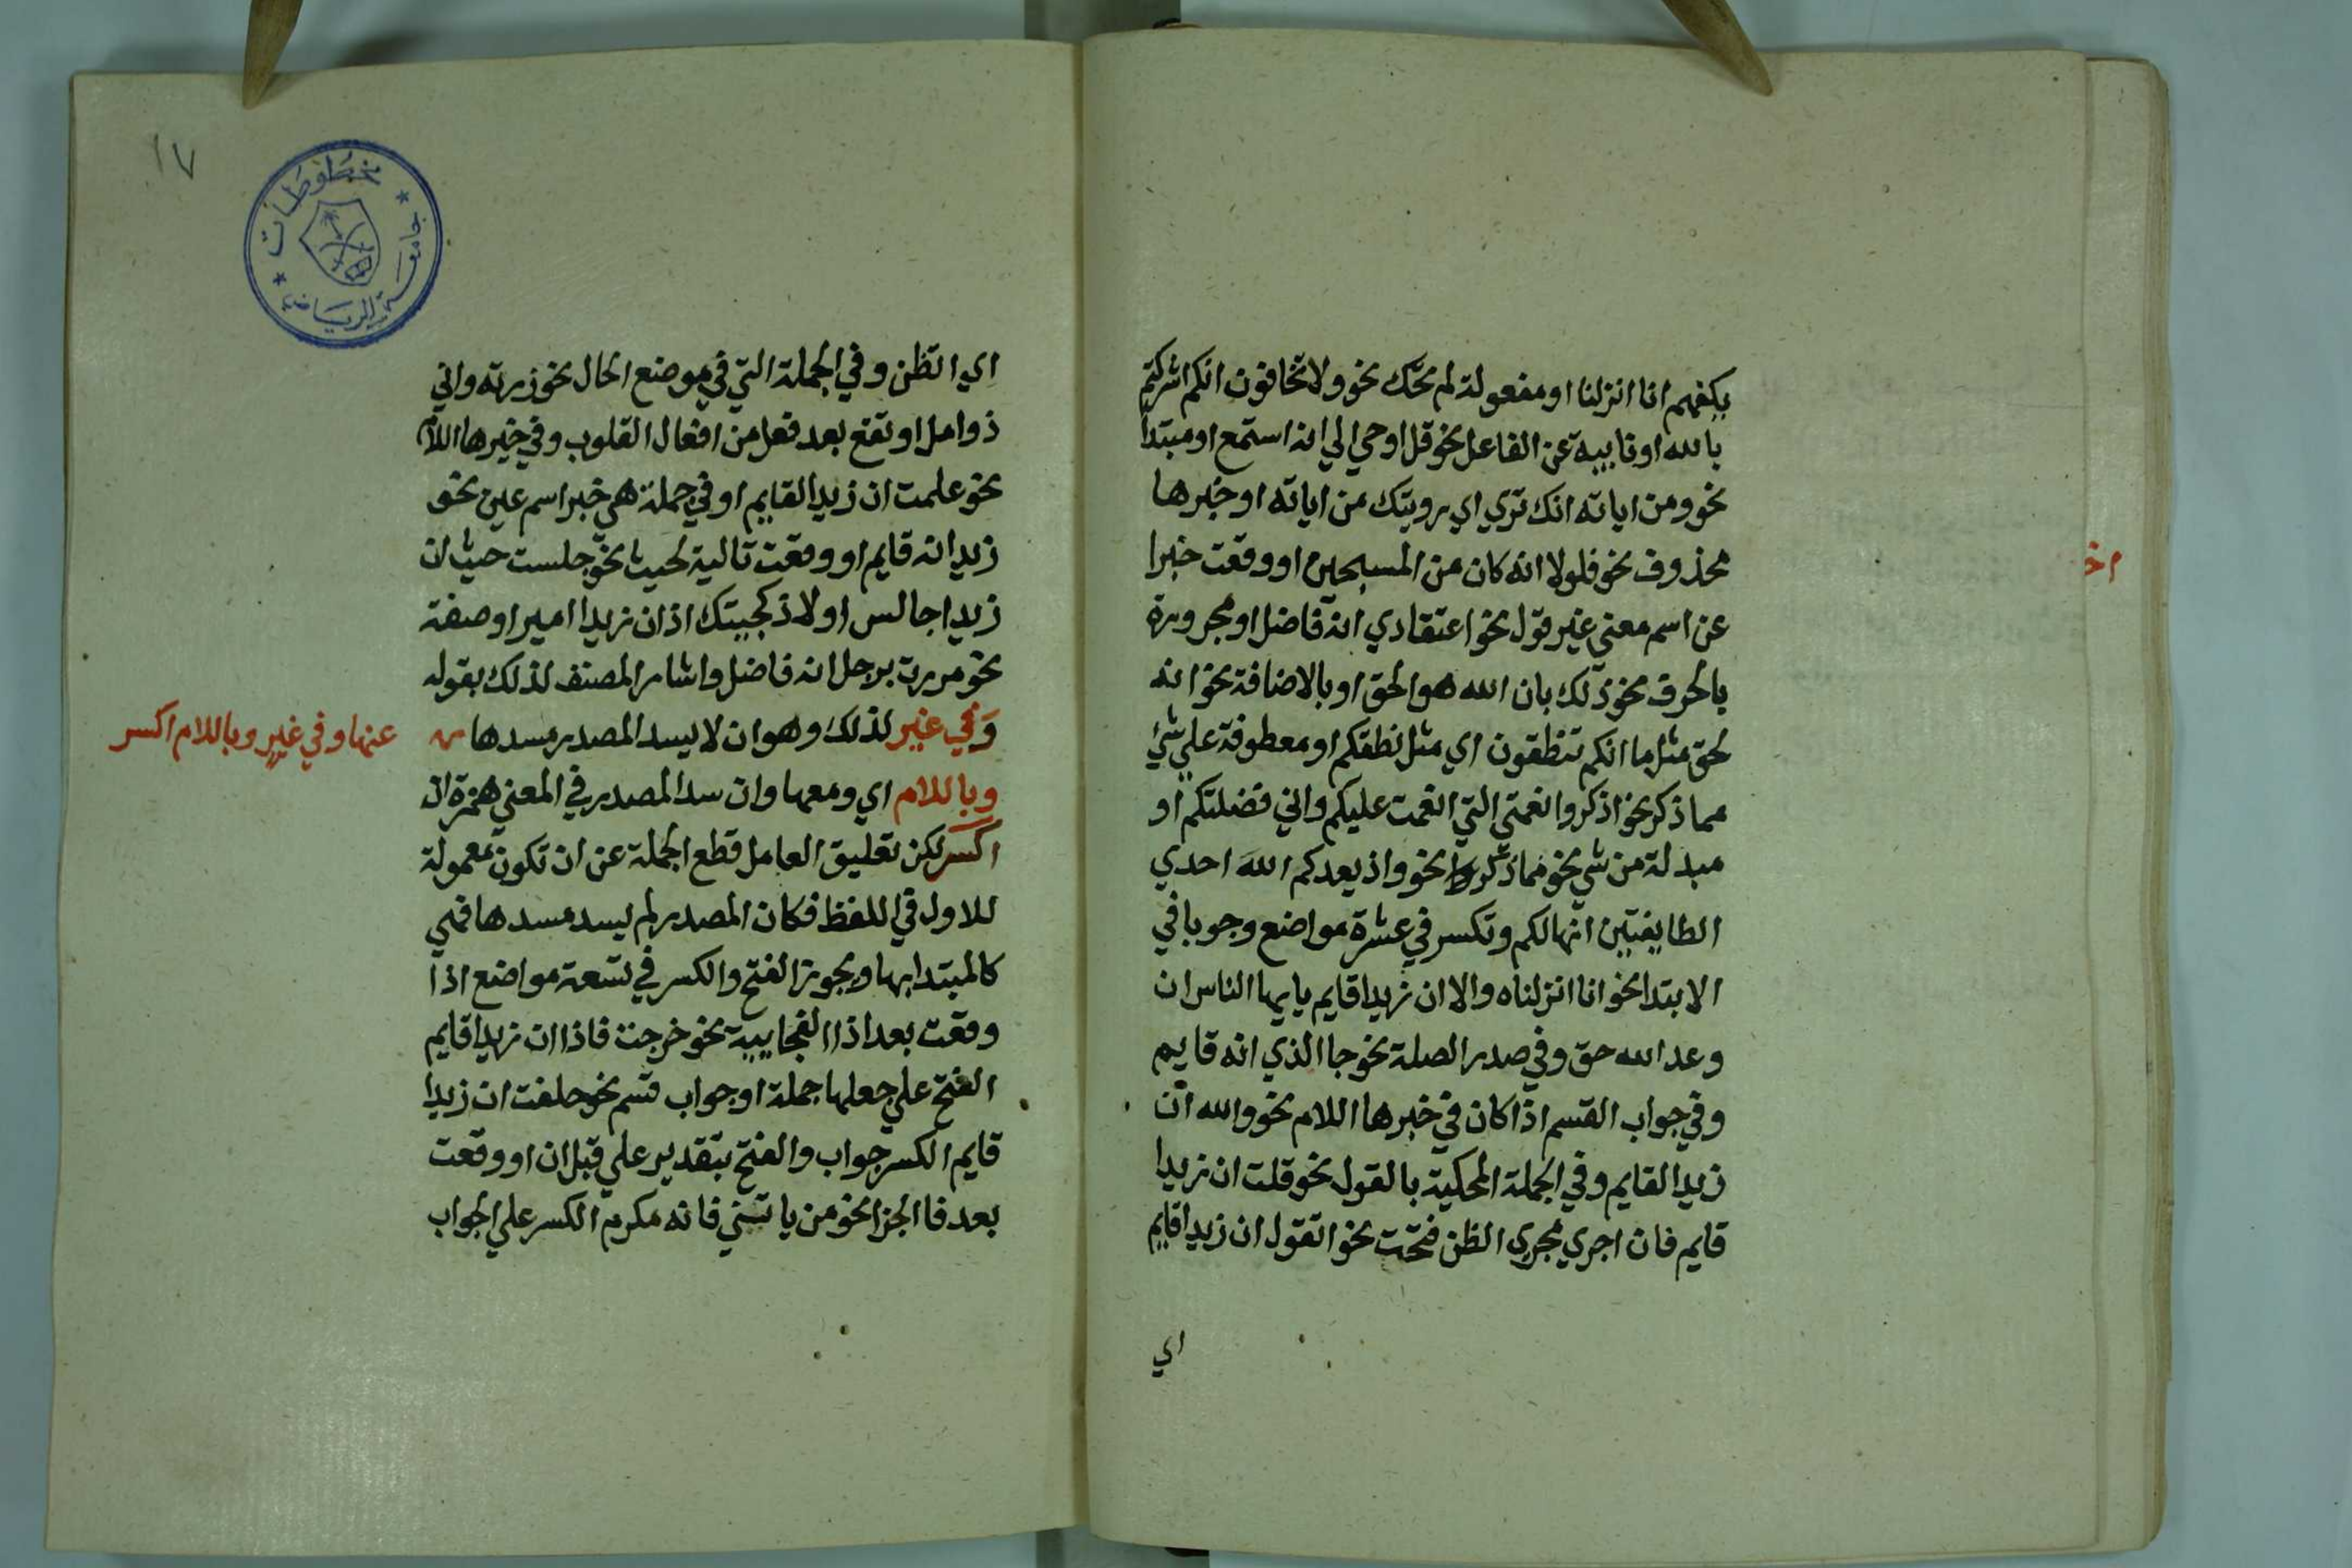 يكفهم انا انزلنا او مفعولة لم تحك نحو ولا تخافون انكم اشركتم
بالله او نايبة عن الفاعل نحو قل اوحي الي انه استمع او مبتدا
نحو ومن اياته انك تري اي رويتك من اياته او خبرها
محذوف نحو فلولا انه كان من المسبحين او وقعت خبرا
عن اسم معني غير قول نحو اعتقادي انه فاضل او مجرورة
بالحرف نحو ذلك بان الله هو الحق او بالاضافة نحو انه
لحق مثل ما انكم تنطقون اي مثل نطقكم او معطوفة علي شئ
مما ذكر نحو اذكروا نعمتي التي انعمت عليكم واني فضلتكم او
مبدلة من شي نحو مما ذكر نحو واذ يعدكم الله احدي
الطايفتين انها لكم وتكسر في عشرة مواضع وجوبا في
الابتدا نحو انا انزلناه والا ان زيدا قايم يايها الناس ان
وعد الله حق وفي صدر الصلة نحو جا الذي انه قايم
وفي جواب القسم اذا كان في خبرها اللام نحو والله ان
زيدا لقايم وفي الجملة المحكية بالقول نحو قلت ان زيدا
قايم فان اجري مجري الظن فتحت نحو اتقول ان زيدا قايم
اي
١٧
مخطوطات
جامعة الرياض
اي اتظن وفي الجملة التي في موضع الحال نحو زرته واني
ذوامل او تقع بعد فعل من افعال القلوب وفي خبرها اللام
نحو علمت ان زيدا لقايم او في جملة هي خبر اسم عين نحو
زيد انه قايم او وقعت تالية لحيث نحو جلست حيث ان
زيدا جالس او لاذ كجيتك اذ ان زيدا امير او صفة
نحو مررت برجل انه فاضل واشار المصنف لذلك بقوله
وفي غير لذلك وهو ان لا يسد المصدر مسدها
عنها وفي غير وباللام اكسر
وباللام اي ومعها وان سد المصدر في المعني همزة ان
اكسر لكن تعليق العامل قطع الجملة عن ان تكون معمولة
للاول في اللفظ فكان المصدر لم يسد مسدها فهي
كالمبتدا بها ويجوز الفتح والكسر في تسعة مواضع اذا
وقعت بعد اذا الفجاييبة نحو خرجت فاذا ان زيدا قايم
الفتح علي جعلها جملة او جواب قسم نحو حلفت ان زيدا
قايم الكسر جواب والفتح بتقدير علي قبل ان او وقعت
بعد فا الجزا نحو من ياتيني فانه مكرم الكسر علي الجواب